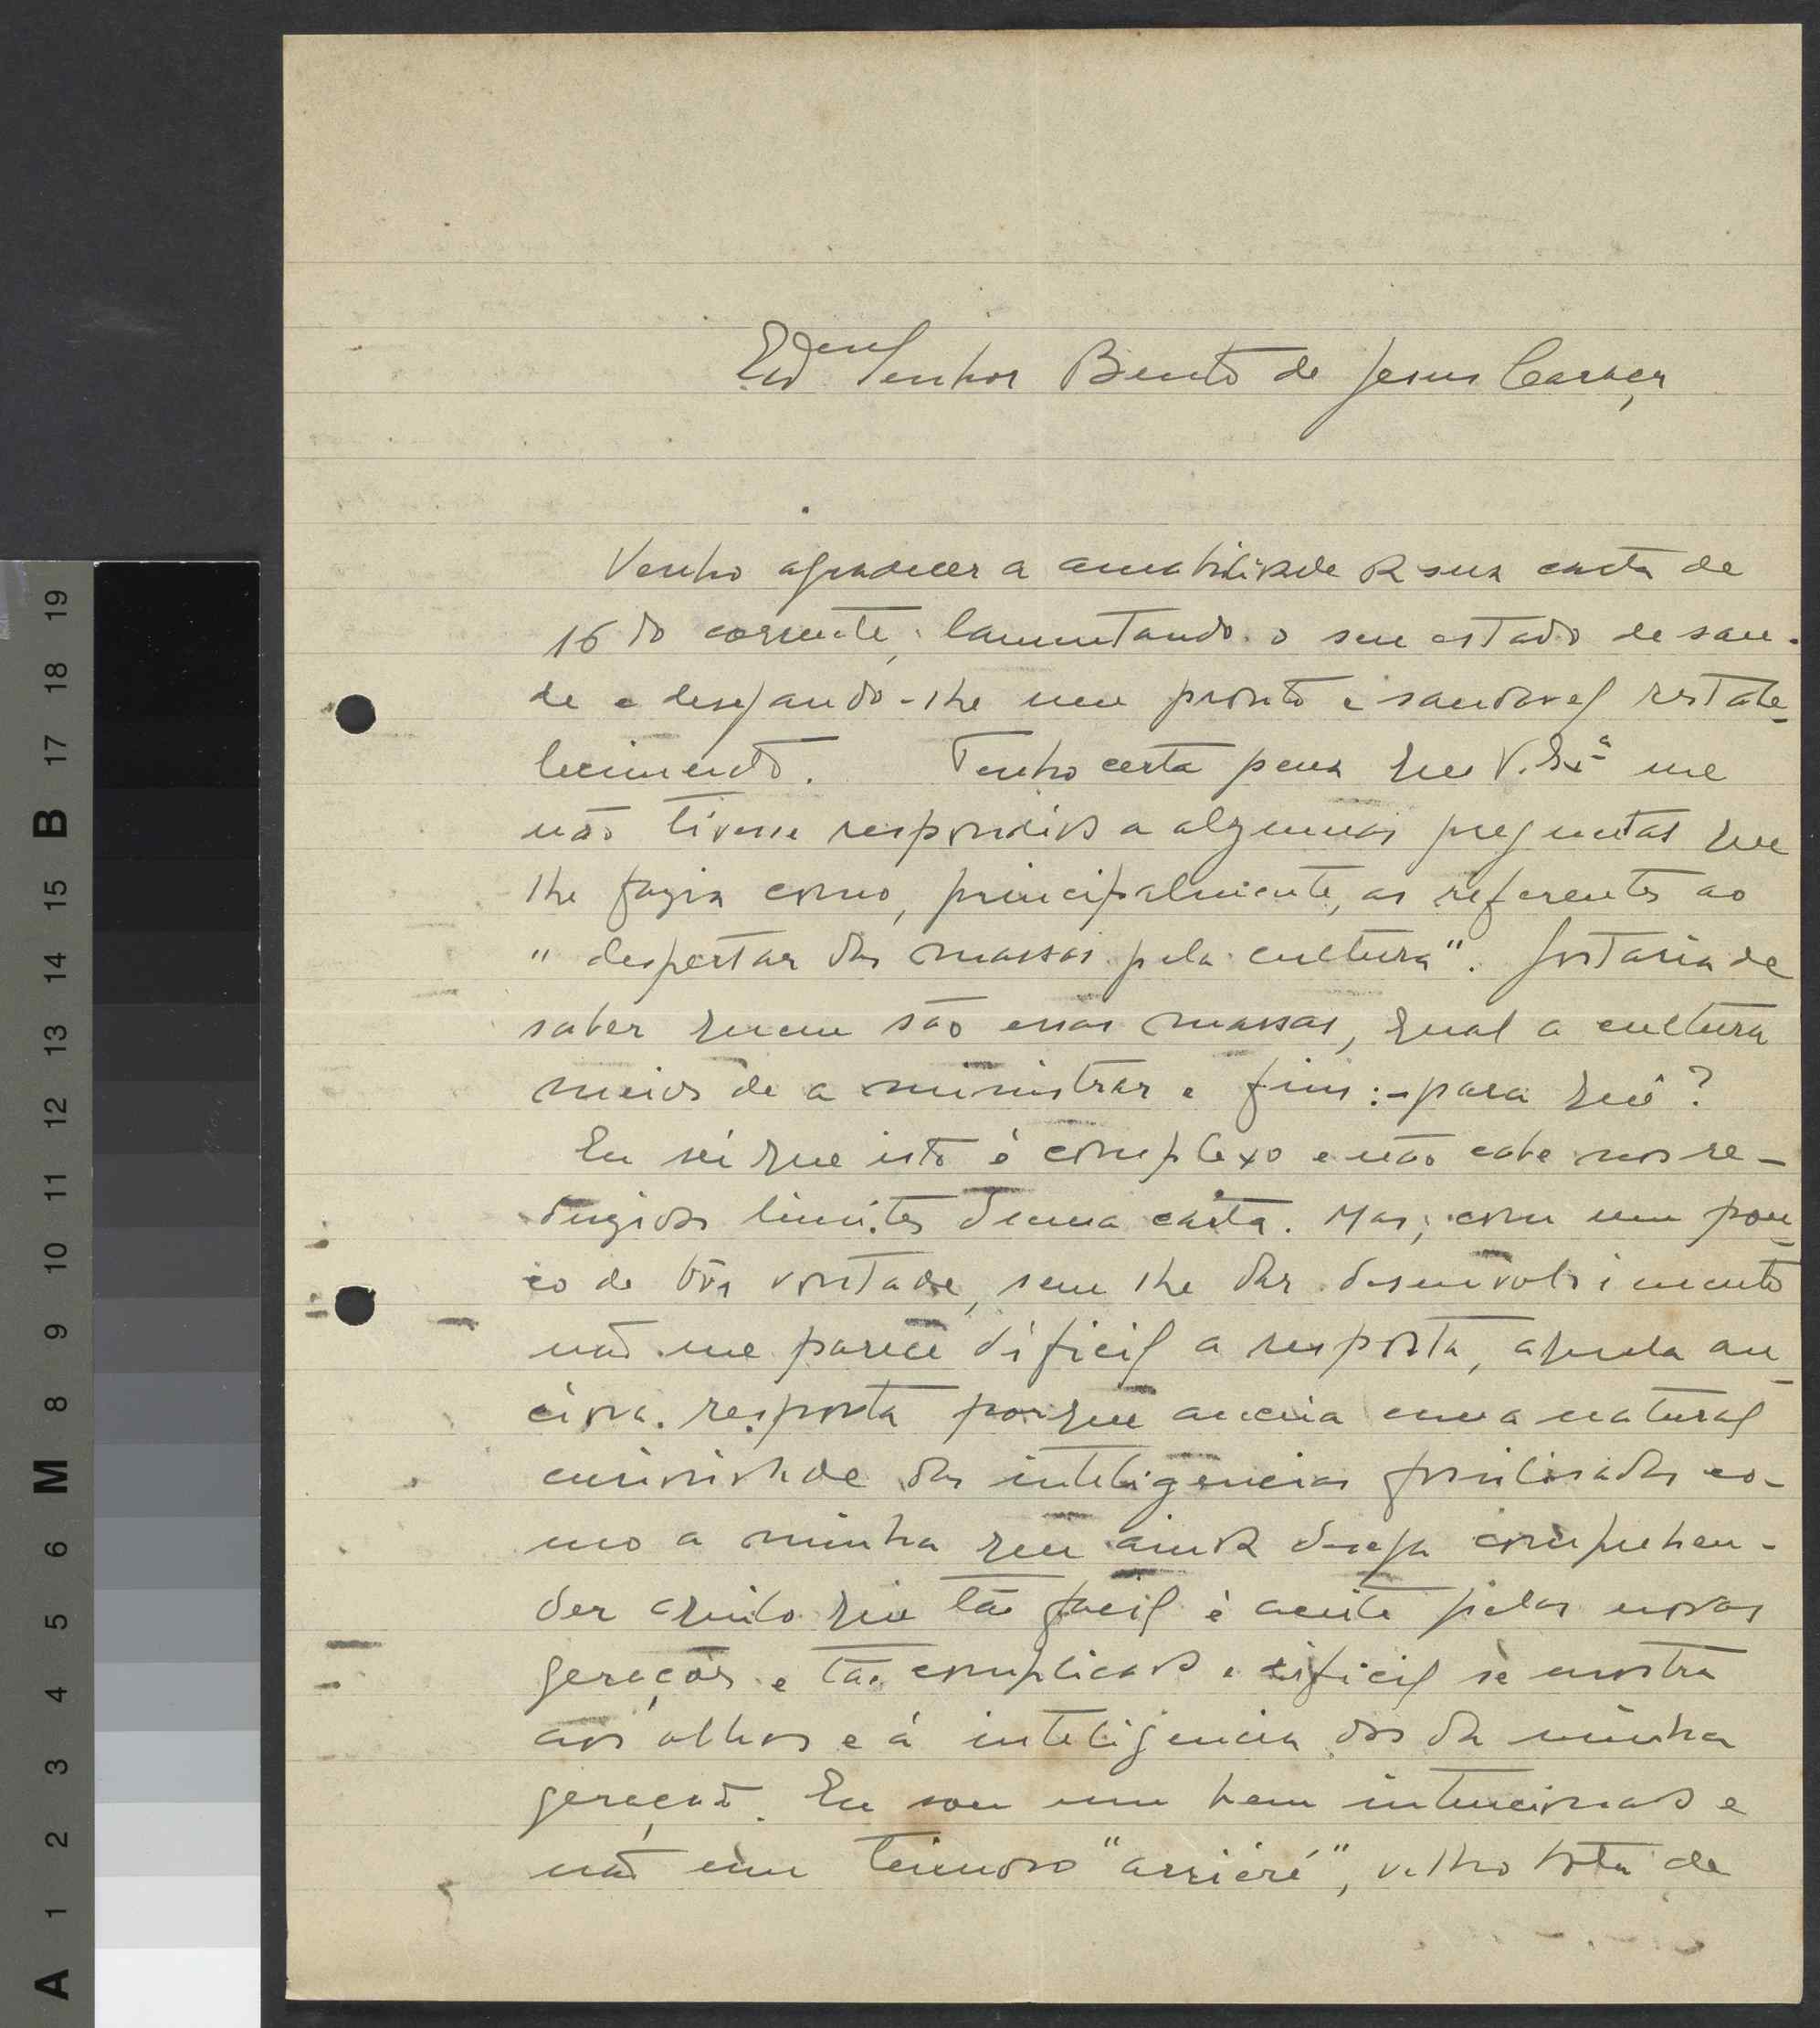 Senhor Bento de Jesus Caraça
Venho agradecer a amabilidade da sua carta de
16 do corrente, lamentando o seu estado de sau-
de e desejando-lhe um pronto e saudavel restabe-
lecimento. Tenho certa pena que V. Exª me
não tivesse respondido a algumas preguntas que
lhe fazia como, principalmente, as referentes ao
"despertar das massas pela cultura". Gostaria de
saber quem são essas massas, qual a cultura
meios de a ministrar e fins:-para quê?
Eu sei que isto é complexo e não cabe nos re-
duzidos limites duma carta. Mas, com um pou-
co de bôa vontade, sem lhe dar desenvolvimento
não me parece dificil a resposta, aquela an-
ciosa resposta porque anceia uma natural
curiosidade das inteligencias fossilisadas co-
mo a minha que ainda deseja comprehen-
der aquilo que tão facil é aceite pelas novas
gerações e tão complicado e dificil se mostra
aos olhos e á inteligencia dos da minha
geração. Eu sou um bem intencionado e
não um teimoso "arriéré", velho bota de